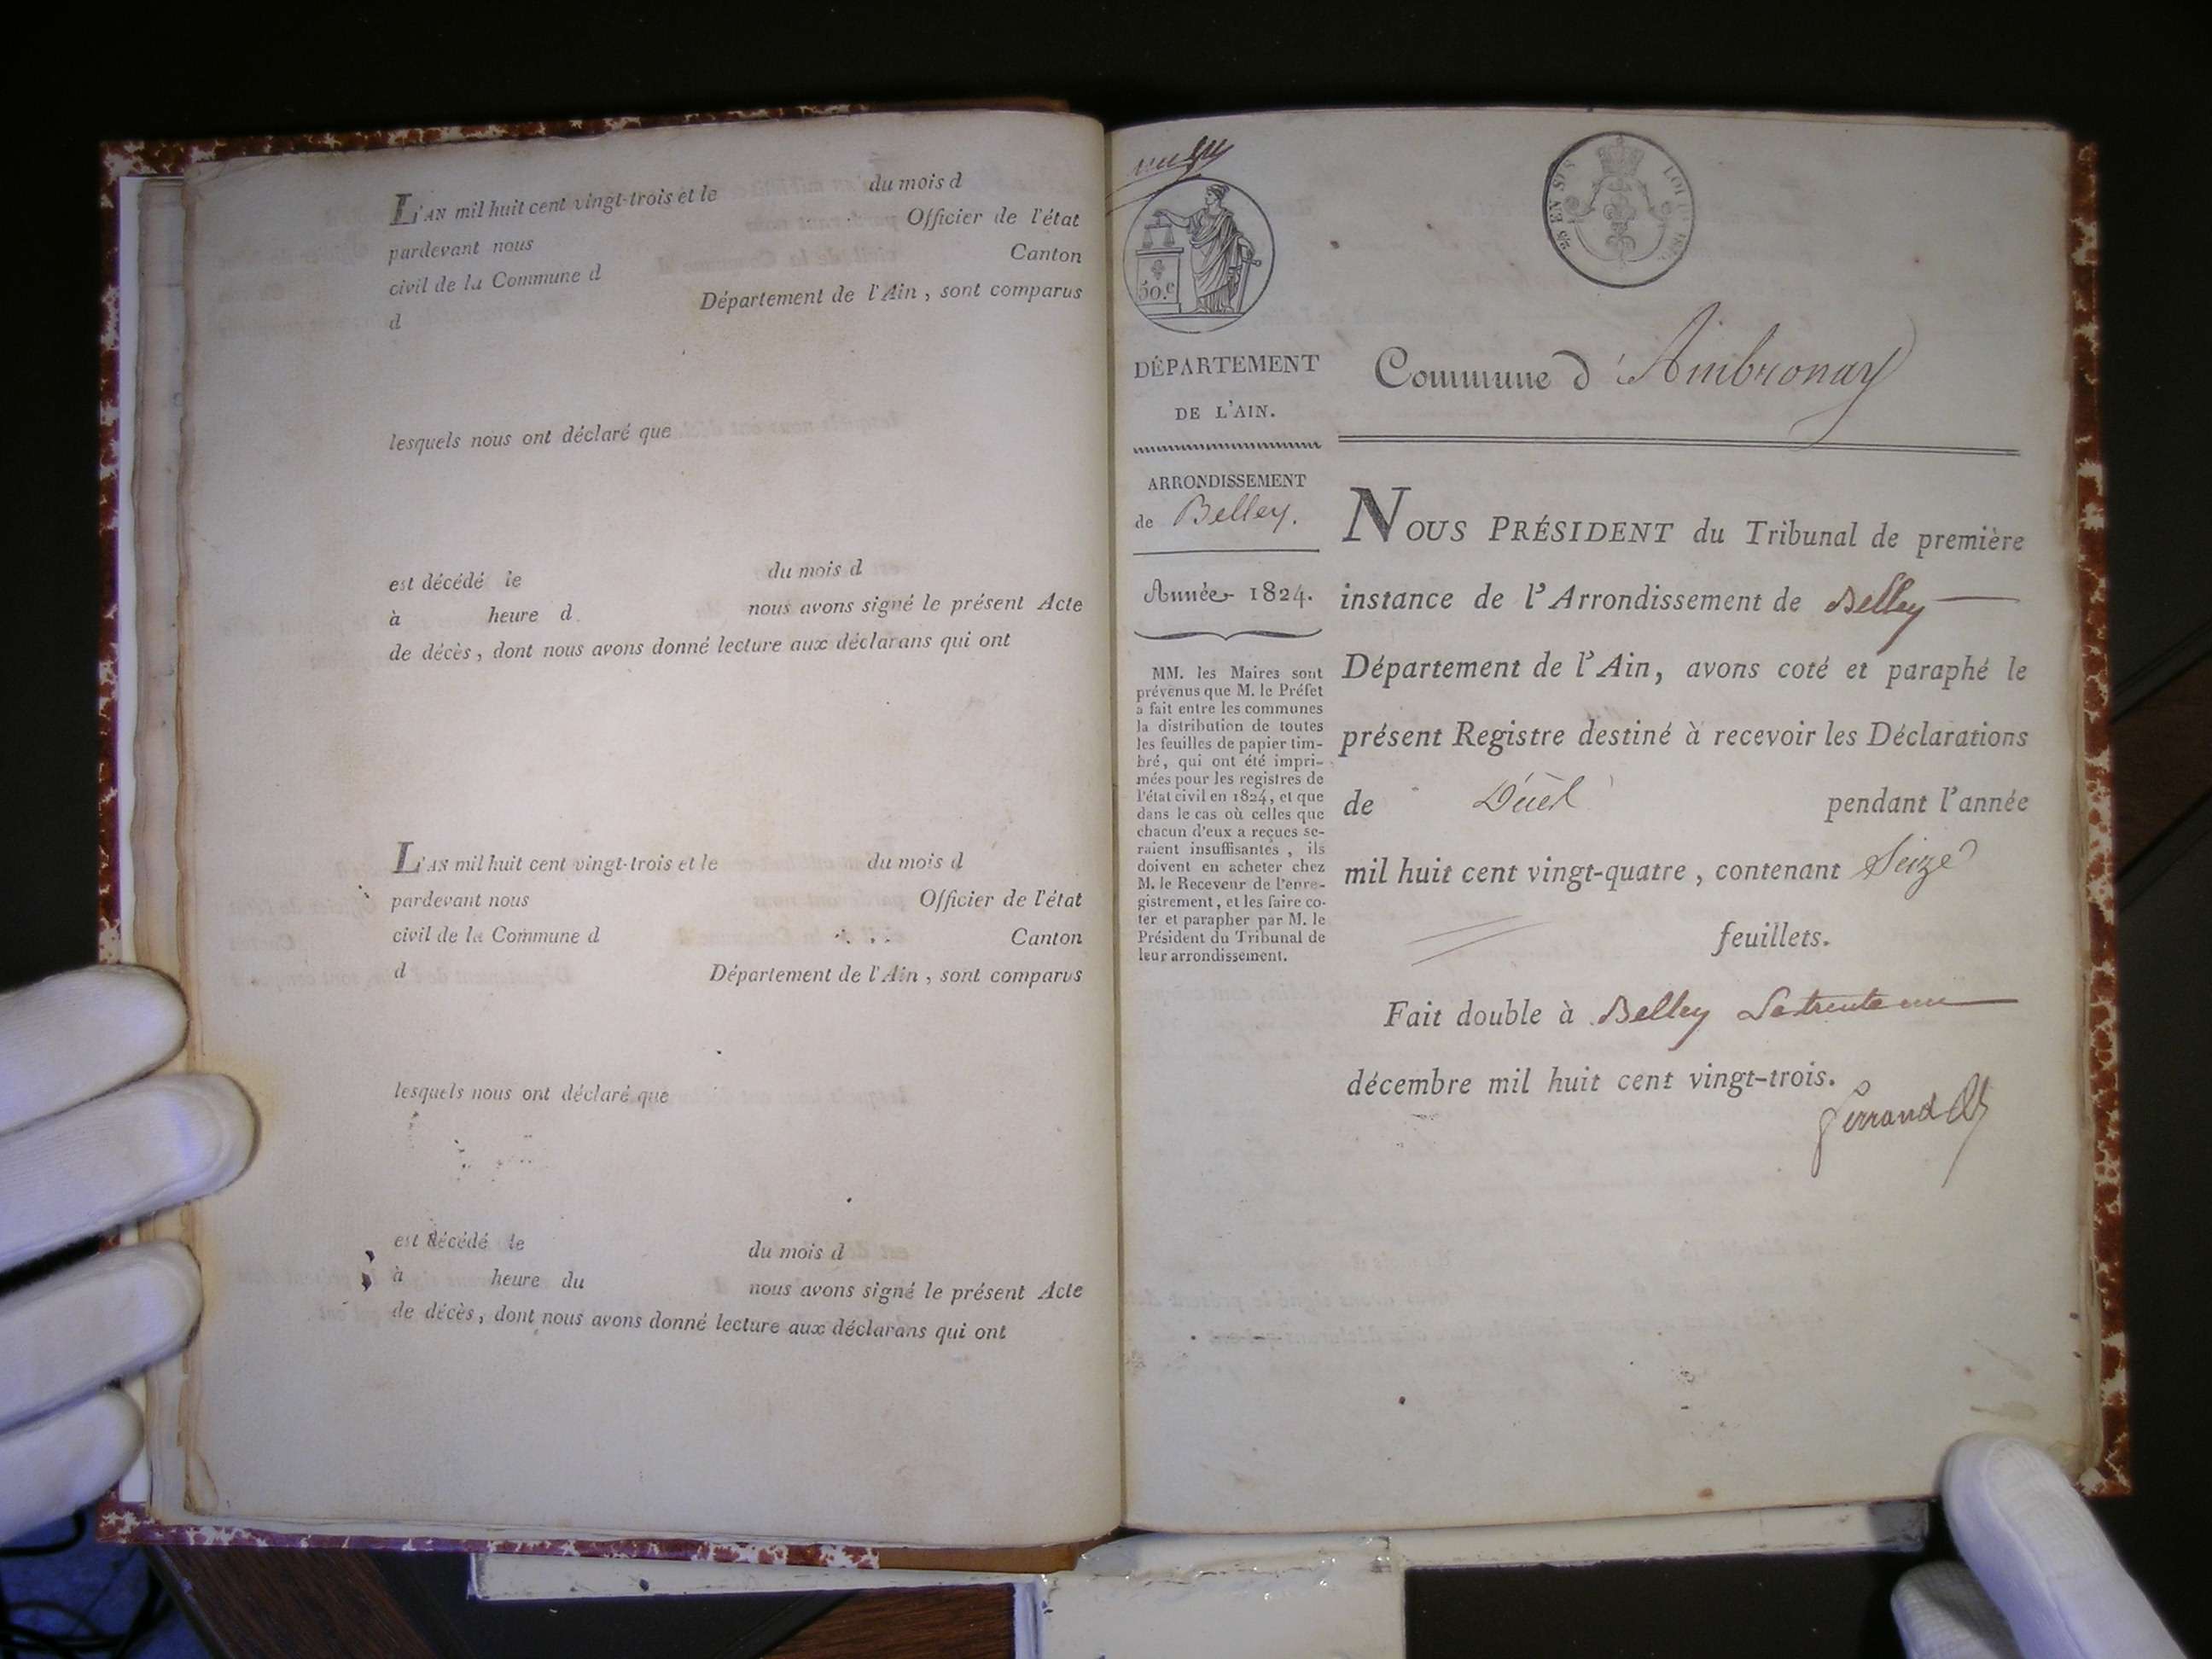 L'AN mil huit cent vingt-trois et le du mois d
pardevant nous Officier de l'état
civil de la Commune d Canton
d Département de l'Ain, sont comparus
lesquels nous ont déclaré que
est décédé le du mois d
à heure d nous avons signé le présent Acte
de décès, dont nous avons donné lecture aux déclarans qui ont
L'AN mil huit cent vingt-trois et le du mois d
pardevant nous Officier de l'état
civil de la Commune d Canton
d Département de l'Ain, sont comparus
lesquels nous ont déclaré que
est décédé le du mois d
à heure du nous avons signé le présent Acte
de décès, dont nous avons donné lecture aux déclarans qui ont
50.c
DÉPARTEMENT
DE L'AIN.
ARRONDISSEMENT
de Belley.
Année 1824.
MM. les Maires sont
prévenus que M. le Préfet
a fait entre les communes
la distribution de toutes
les feuilles de papier tim-
bré, qui ont été impri-
mées pour les registres de
l'état civil en 1824, et que
dans le cas où celles que
chacun d'eux a reçues se-
raient insuffisantes, ils
doivent en acheter chez
M. le Receveur de l'enre-
gistrement, et les faire co-
ter et parapher par M. le
Président du Tribunal de
leur arrondissement.
Commune d'Ambronay
NOUS PRÉSIDENT du Tribunal de première
instance de l'Arrondissement de Belley
Département de l'Ain, avons coté et paraphé le
présent Registre destiné à recevoir les Déclarations
de pendant l'année
mil huit cent vingt-quatre, contenant Seize
feuillets.
Fait double à Belley Le trente un
décembre mil huit cent vingt-trois.